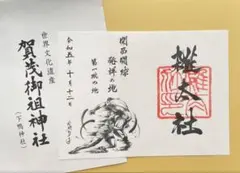 雑太社
関西蹴球
発祥の地
第一蹴の地
令和五年十月十二日
世界文化遺産
賀茂御祖神社
(下鴨神社)